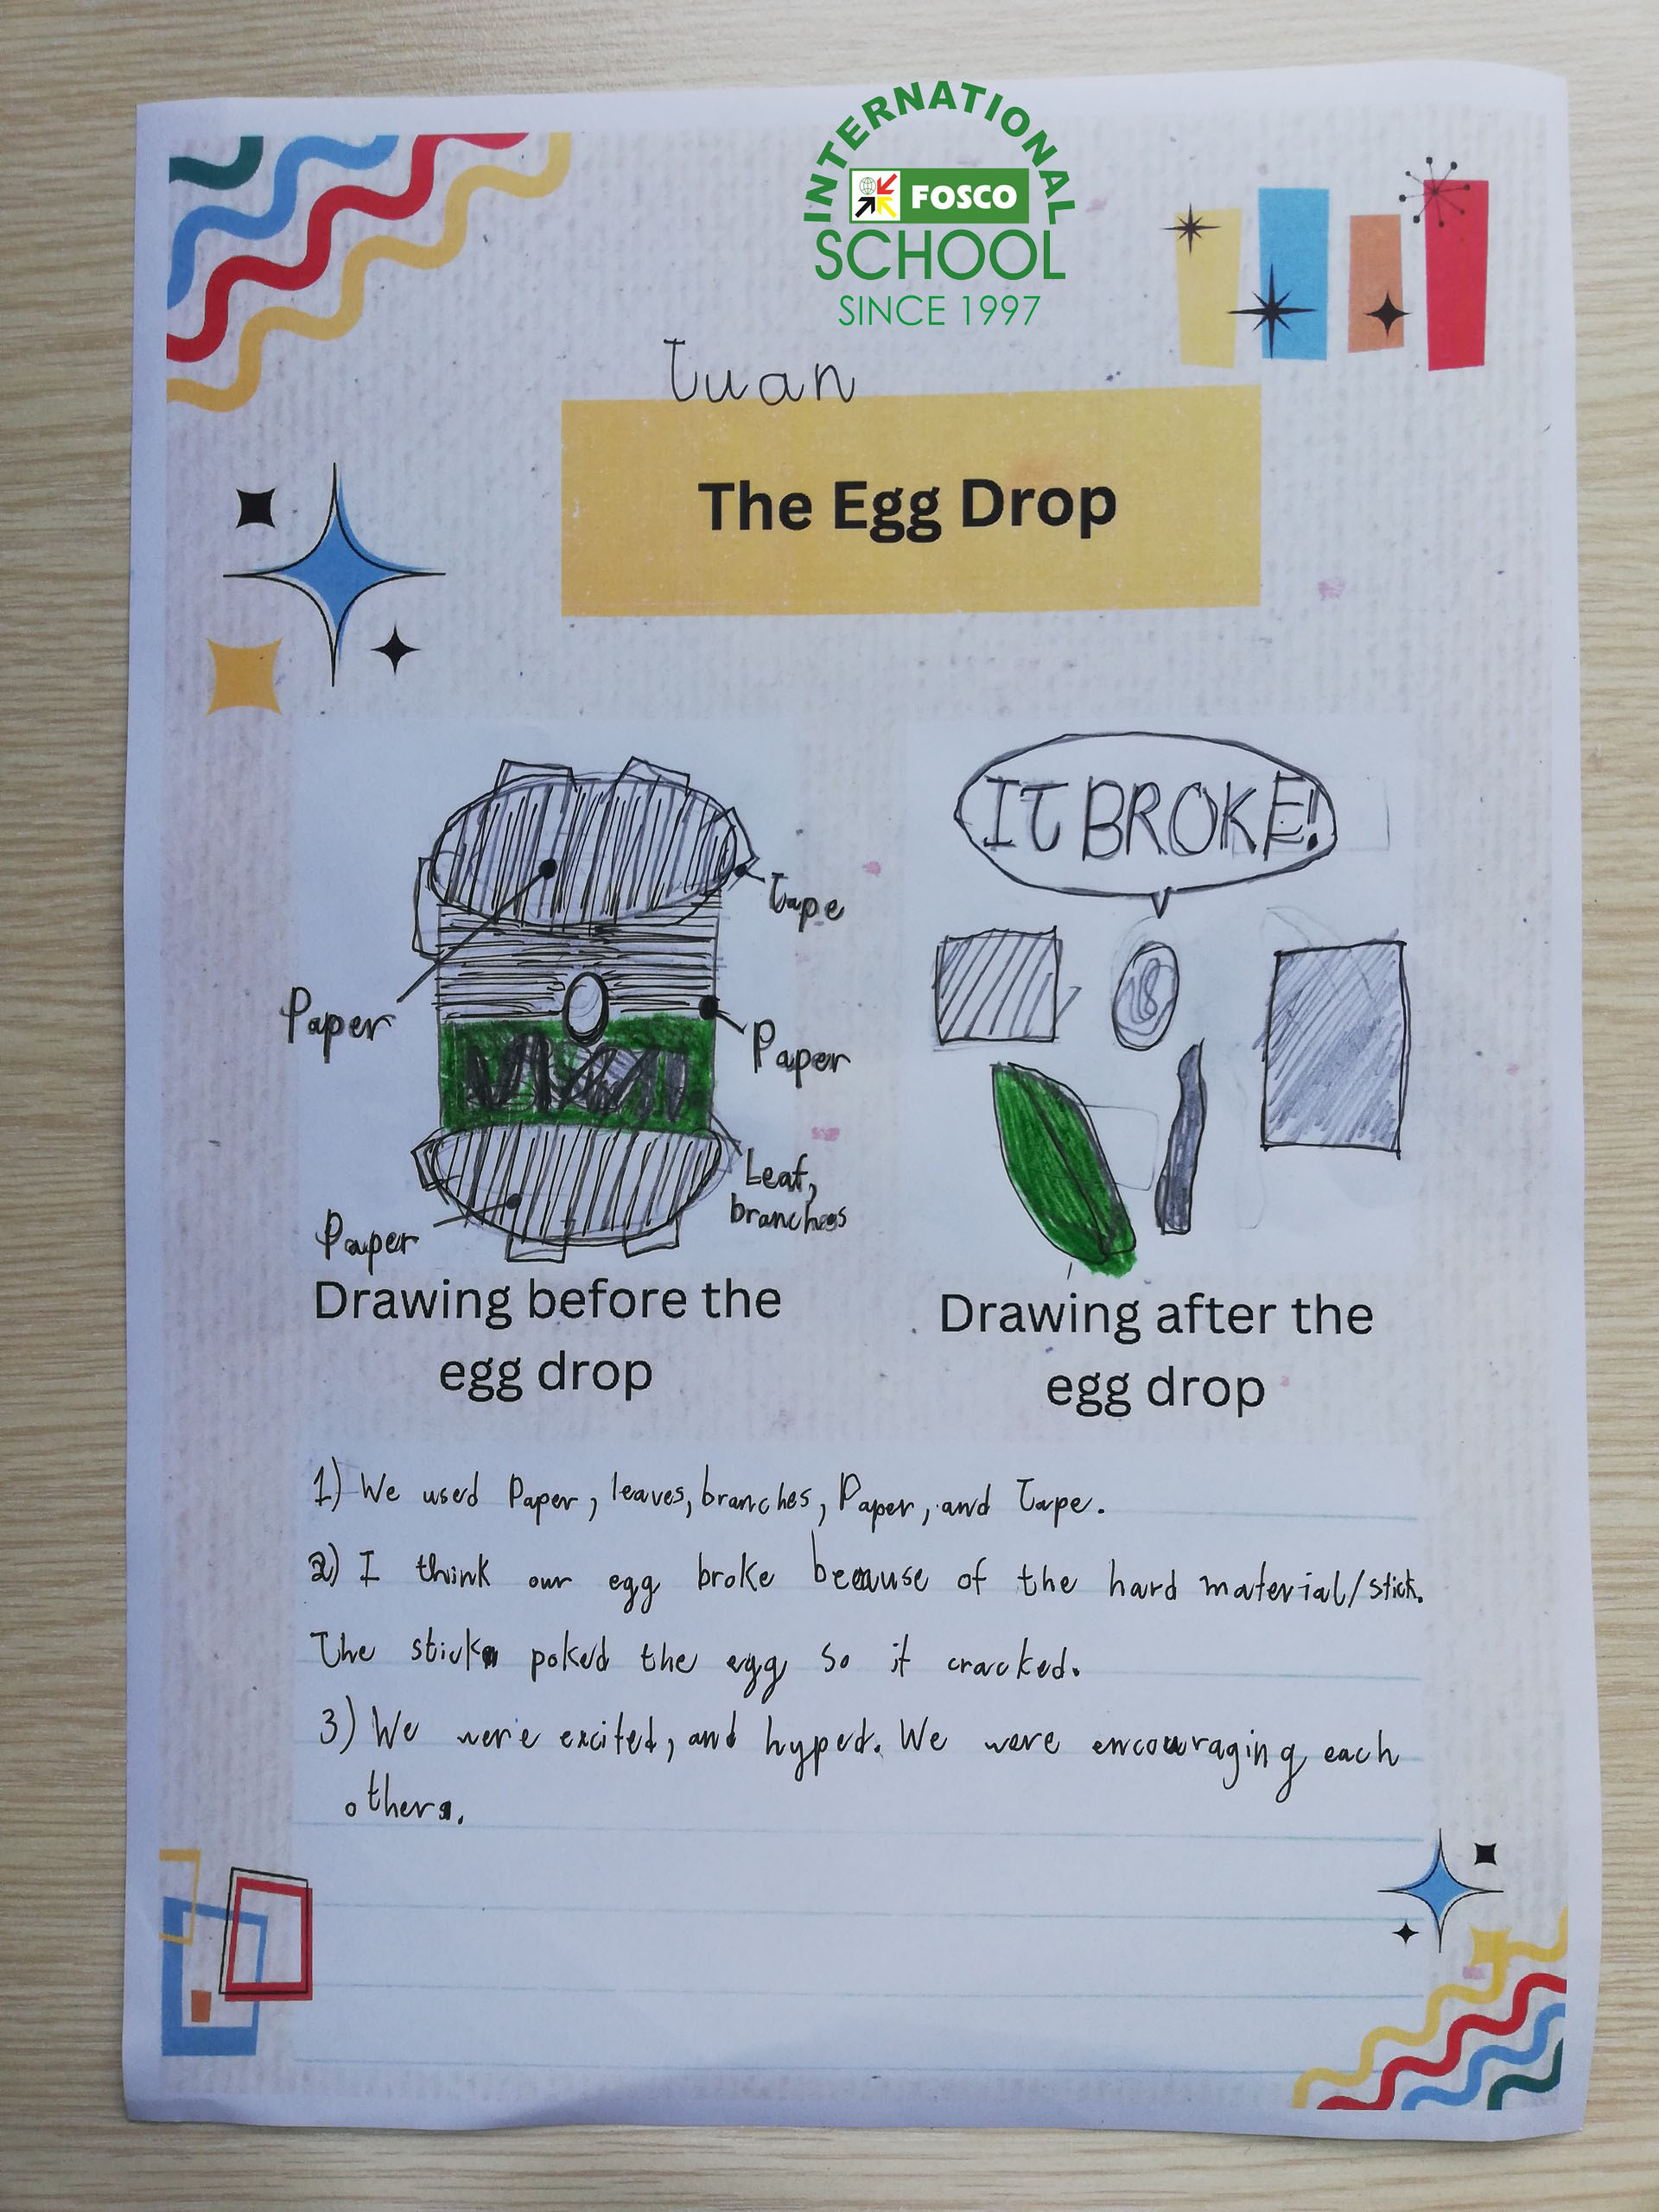 INTERNATIONAL
FOSCO
SCHOOL
SINCE 1997
Tuan
The Egg Drop
IT BROKE!
Tape
Paper
Paper
Leaf,
branches
Paper
Drawing before the
egg drop
Drawing after the
egg drop
1) We used Paper, leaves, branches, Paper, and Tape.
2) I think our egg broke because of the hard material/stick.
The stick poked the egg so it cracked.
3) We were excited, and hyped. We were encouraging each
others.